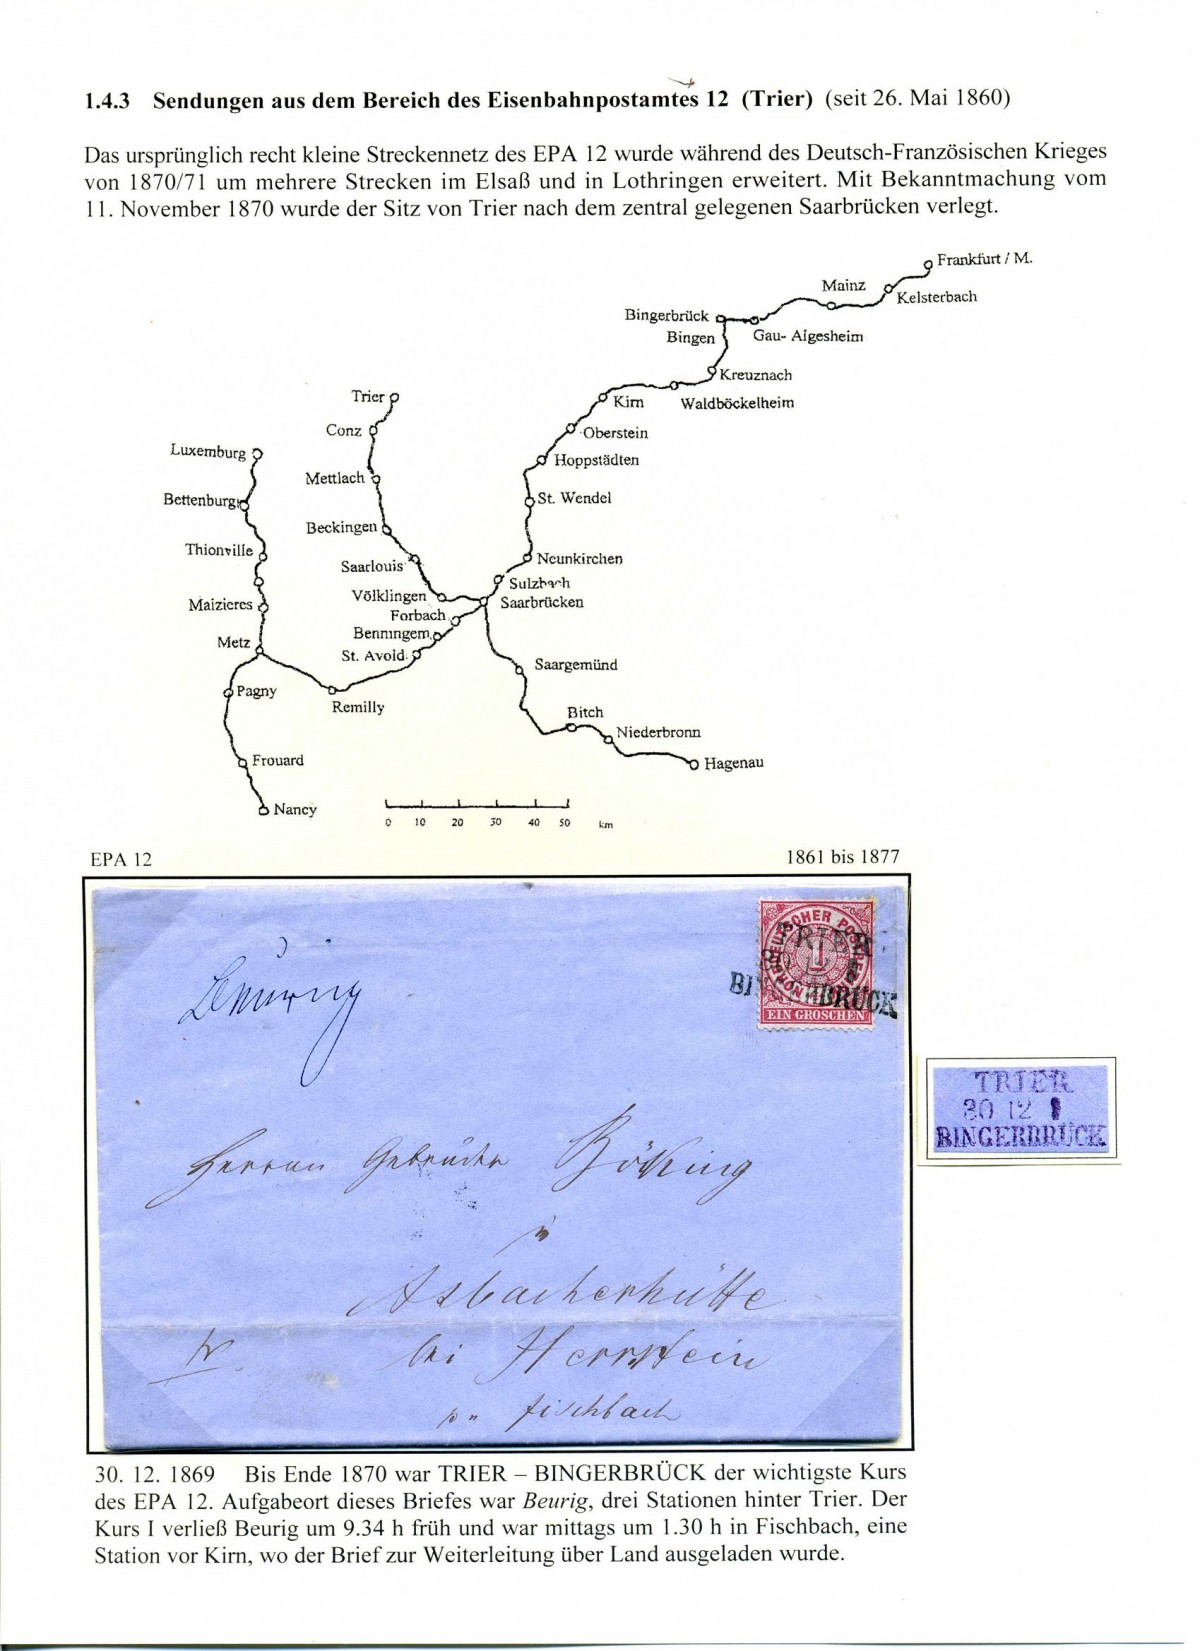 1.4.3 Sendungen aus dem Bereich des Eisenbahnpostamtes 12 (Trier) (seit 26. Mai 1860)
Das ursprünglich recht kleine Streckennetz des EPA 12 wurde während des Deutsch-Französischen Krieges
von 1870/71 um mehrere Strecken im Elsaß und in Lothringen erweitert. Mit Bekanntmachung vom
11. November 1870 wurde der Sitz von Trier nach dem zentral gelegenen Saarbrücken verlegt.
Frankfurt / M.
Mainz
Kelsterbach
Bingerbrück
Bingen
Gau- Algesheim
Kreuznach
Waldböckelheim
Kirn
Trier
Conz
Oberstein
Luxemburg
Hoppstädten
Mettlach
Bettenburg
St. Wendel
Beckingen
Thionville
Neunkirchen
Saarlouis
Sulzbach
Völklingen
Saarbrücken
Maizieres
Forbach
Benningem
Metz
St. Avold
Saargemünd
Pagny
Remilly
Bitch
Niederbronn
Frouard
Hagenau
Nancy
0 10 20 30 40 50 km
EPA 12 1861 bis 1877
NORDDEUTSCHER POSTBEZIRK
1
EIN GROSCHEN
TRIER
30 12 I
BINGERBRÜCK
Herren Gebrüder Böking
in
Asbacherhütte
bei Herrstein
pr Fischbach
30. 12. 1869 Bis Ende 1870 war TRIER – BINGERBRÜCK der wichtigste Kurs
des EPA 12. Aufgabeort dieses Briefes war Beurig, drei Stationen hinter Trier. Der
Kurs I verließ Beurig um 9.34 h früh und war mittags um 1.30 h in Fischbach, eine
Station vor Kirn, wo der Brief zur Weiterleitung über Land ausgeladen wurde.